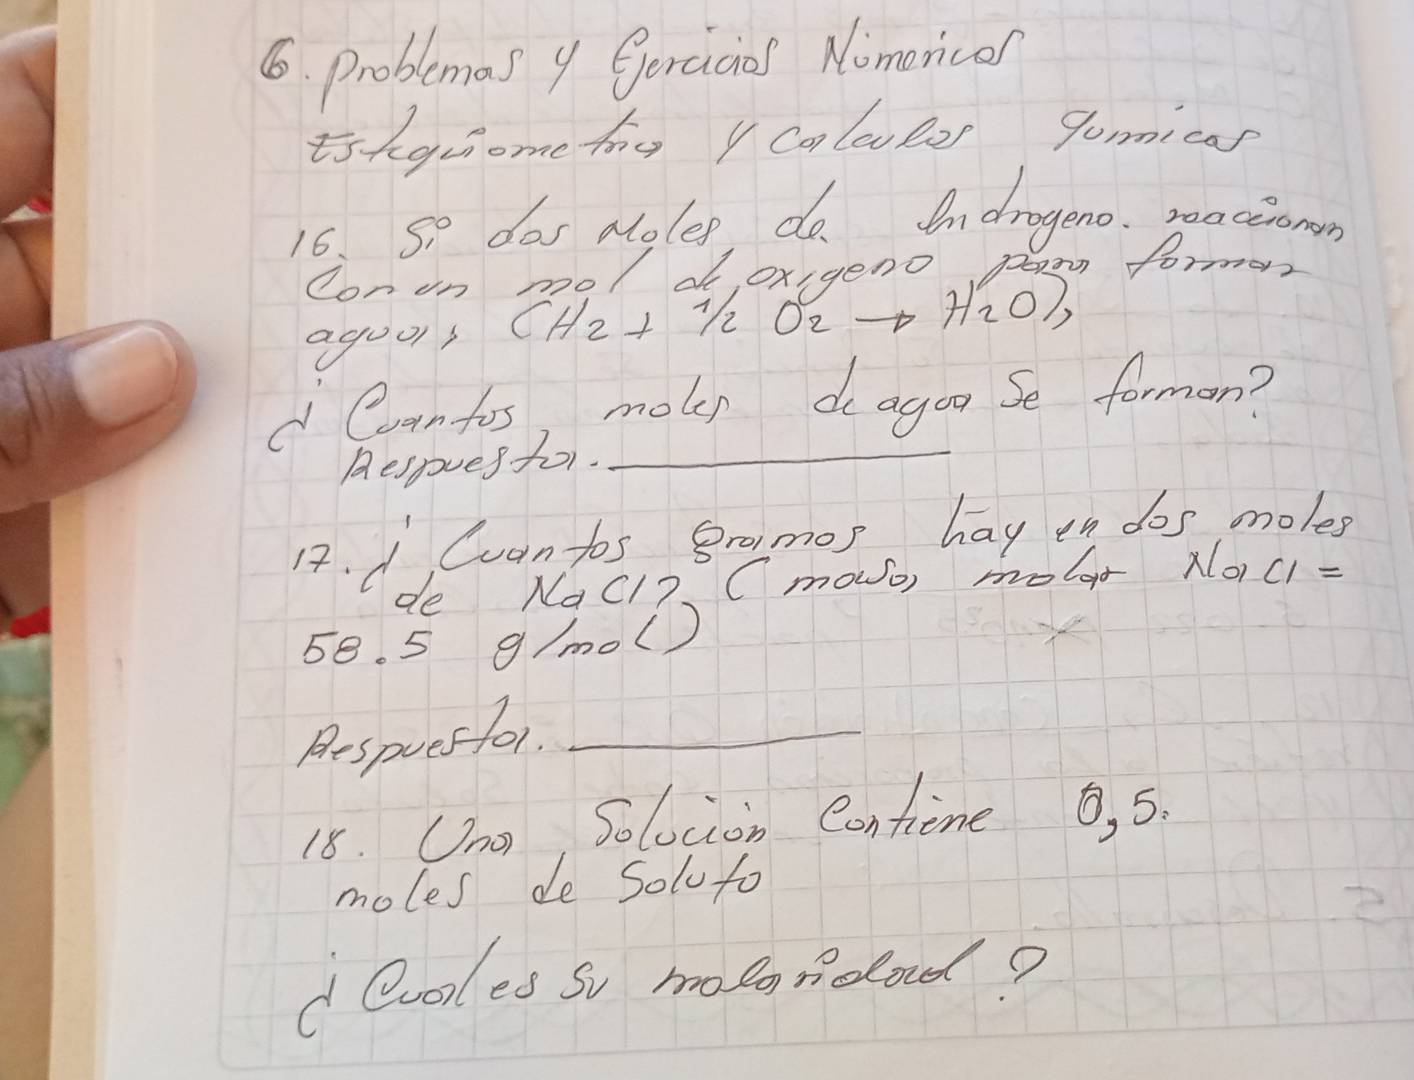 6. problemas y Ejercicios Númericos
Estequiometria y calculos quimicos
16. Si dos Moles de hidrogeno. reaccionan
Con un mol de oxigeno para formar
agua, (H2 + 1/2 O2 → H2O),
¿Cuantos moles de agua Se forman?
Respuesta.
17. ¿Cuantos gramos hay en dos moles
de NaCl? (masa molar NaCl =
58.5 g/mol)
Respuesta.
18. Una Solución Contiene 0,5.
moles de Soluto
¿Cual es Su molaridad?